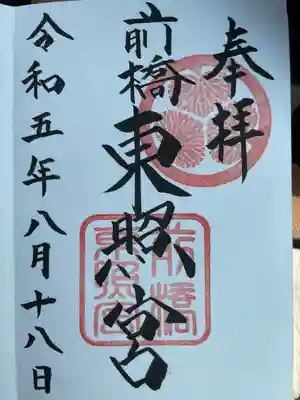 奉拝
前橋東照宮
前橋東照宮
令和五年八月十八日